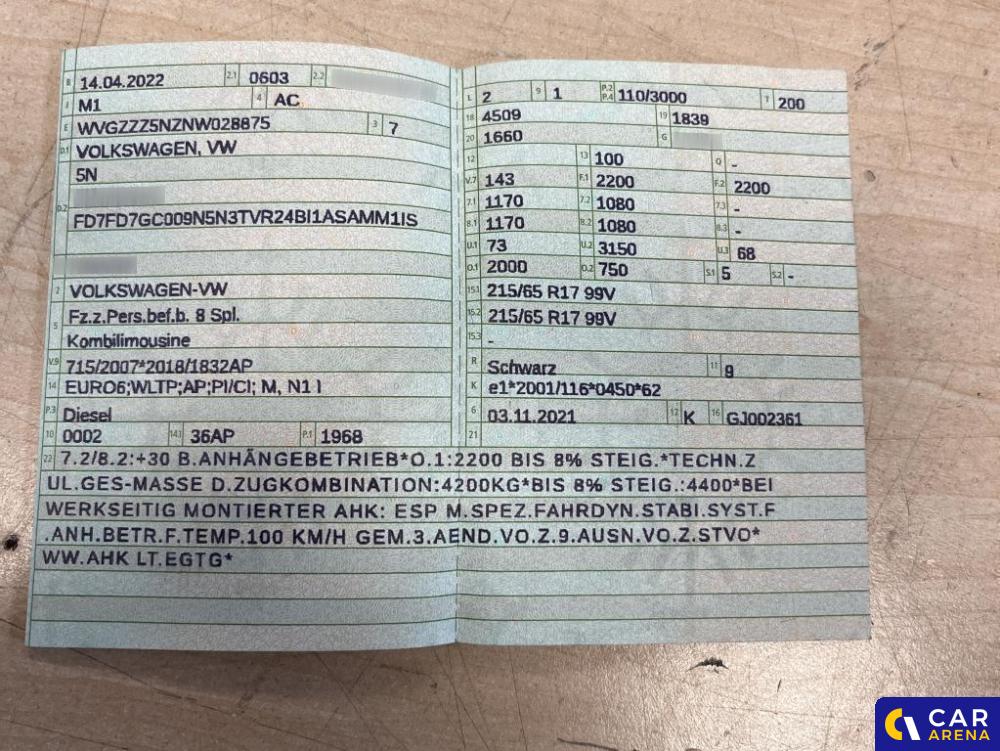 B 14.04.2022 2.1 0603 2.2
J M1 4 AC
E WVGZZZ5NZNW028875 3 7
D.1 VOLKSWAGEN, VW
5N
D.2
FD7FD7GC009N5N3TVR24BI1ASAMM1IS
2 VOLKSWAGEN-VW
5 Fz.z.Pers.bef.b. 8 Spl.
Kombilimousine
V.9 715/2007*2018/1832AP
14 EURO6;WLTP;AP;PI/CI; M, N1 I
P.3 Diesel
10 0002 14.1 36AP P.1 1968
L 2 9 1 P.2 P.4 110/3000 T 200
18 4509 19 1839
20 1660 G
12 13 100 Q -
V.7 143 F.1 2200 F.2 2200
7.1 1170 7.2 1080 7.3 -
8.1 1170 8.2 1080 8.3 -
U.1 73 U.2 3150 U.3 68
O.1 2000 O.2 750 S.1 5 S.2 -
15.1 215/65 R17 99V
15.2 215/65 R17 99V
15.3 -
R Schwarz 11 9
K e1*2001/116*0450*62
6 03.11.2021 17 K 16 GJ002361
21
22 7.2/8.2:+30 B.ANHÄNGEBETRIEB*O.1:2200 BIS 8% STEIG.*TECHN.Z
UL.GES-MASSE D.ZUGKOMBINATION:4200KG*BIS 8% STEIG.:4400*BEI
WERKSEITIG MONTIERTER AHK: ESP M.SPEZ.FAHRDYN.STABI.SYST.F
.ANH.BETR.F.TEMP.100 KM/H GEM.3.AEND.VO.Z.9.AUSN.VO.Z.STVO*
WW.AHK LT.EGTG*
CAR
ARENA